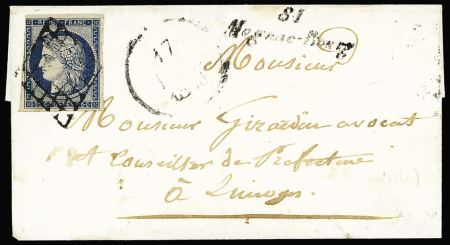 REPUB. FRANC.
81
Magnac-Bourg
17
Monsieur
Monsieur Girardin avocat
et Conseiller de Prefecture
à Limoges